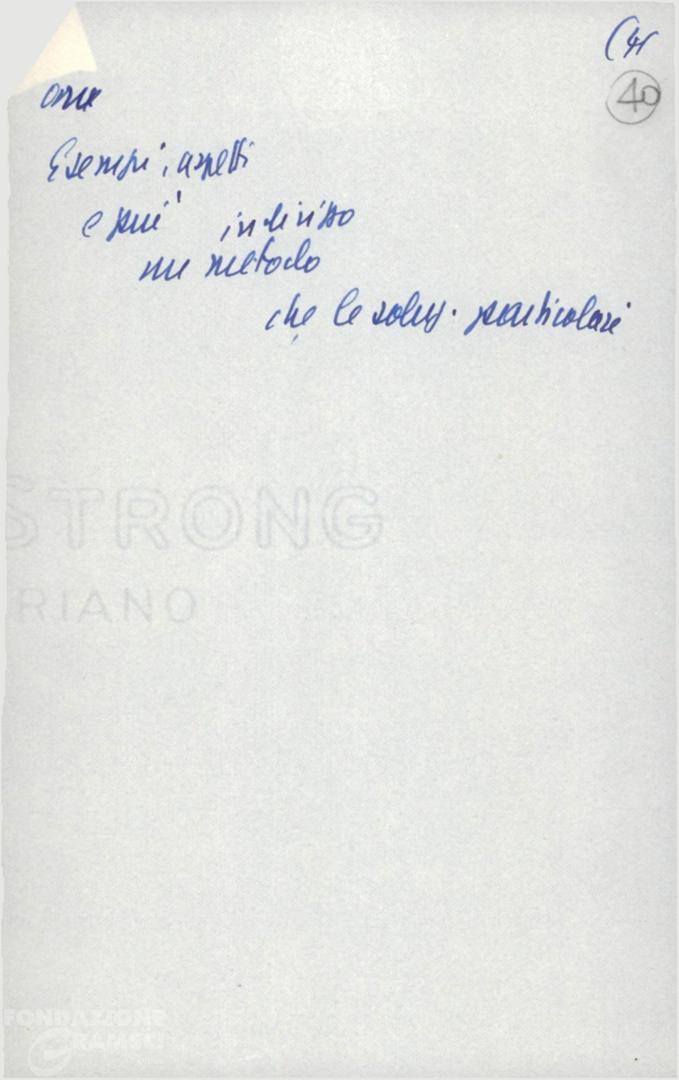 (41
40
Esempi, aspetti
e più indirizzo
un metodo
che le soluz. particolari
STRONG
RIANO
FONDAZIONE
GRAMSCI